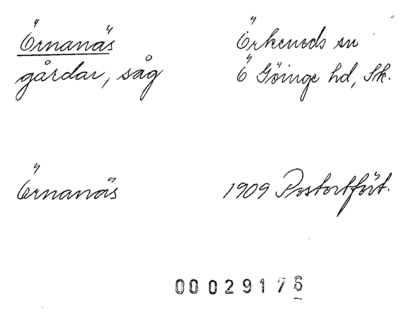 Örnanäs Örkeneds sn
gårdar, såg Ö Göinge hd, Sk.
Örnanäs 1909 Postortfört.
00029176